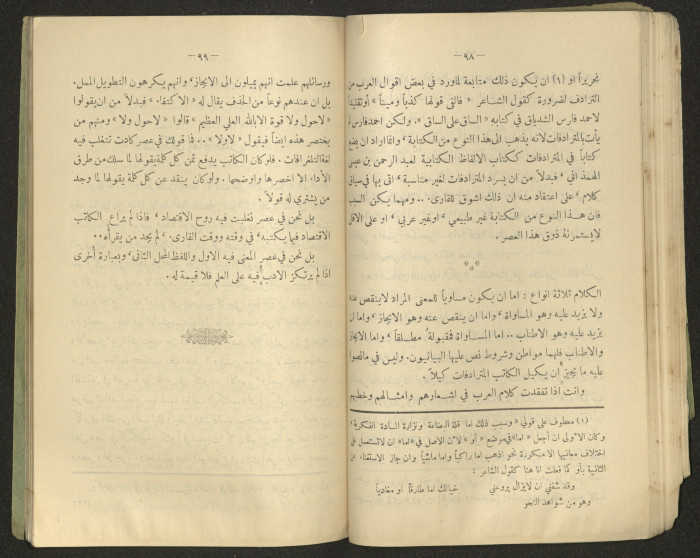 — ٩٨ —
تحريراً او (١) ان يكون ذلك متابعة لماورد في بعض اقوال العرب من
الترادف لضرورة كقول الشاعر « فالفى قولها كذباً وميناً » أوتقليداً
لاحمد فارس الشدياق في كتابه « الساق على الساق »، ولكن احمد فارس لم
يأت بالمترادفات لانه يذهب الى هذا النوع من الكتابة، وانما اراد ان يضع
كتاباً في المترادفات ككتاب الالفاظ الكتابية لعبد الرحمن بن عيسى
الهمذاني، فبدلاً من ان يسرد المترادفات لغير مناسبة، اتى بها في سياق
كلام، على اعتقاد منه ان ذلك اشوق للقارىء... ومهما يكن السبب
فان هذا النوع من الكتابة غير طبيعي، اوغير عربي، او على الاقل
لايستمرئه ذوق هذا العصر.
***
الكلام ثلاثة انواع: اما ان يكون مساوياً للمعنى المراد لاينقص عنه
ولا يزيد عليه وهو المساواة، واما ان ينقص عنه وهو الايجاز، واما ان
يزيد عليه وهو الاطناب.. اما المساواة فمقبولة مطلقاً، واما الايجاز
والاطناب فلهما مواطن وشروط نص عليها البيانيون. وليس في مانصوا
عليه ما يجيز أن يكيل الكاتب المترادفات كيلاً.
وانت اذا تفقدت كلام العرب في اشعارهم وامثالهم وخطبهم
(١) معطوف على قولي « وسبب ذلك اما قلة البضاعة ونزارة المادة الفكرية »
وكان الاولى ان اجعل « اما» في موضع « أو » لأن الاصل في «اما» ان لاتستعمل على
اختلاف معانيها الا مكررة نحو اذهب اما راكباً واما ماشياً وان جاز الاستغناء عن
الثانية بأو كما فعلت انا هنا كقول الشاعر:
وقد شفني ان لايزال يروعني خيالك اما طارقاً او مغادياً
وهو من شواهد النحو
— ٩٩ —
ورسائلهم علمت انهم يميلون الى الايجاز، وانهم يكرهون التطويل الممل.
بل ان عندهم نوعاً من الحذف يقال له « الاكتفاء » فبدلاً من ان يقولوا
« لاحول ولا قوة الا بالله العلي العظيم » قالوا « لاحول ولا » ومنهم من
يختصر هذه ايضاً فيقول « لاولا »... فما قولك في عصر كادت تتغلب فيه
لغة التلغرافات. فلو كان الكاتب يدفع ثمن كل كلمة يقولها لما سلك من طرق
الأداء الا اخصرها واوضحها. ولو كان ينقد عن كل كلمة يقولها لما وجد
من يشتري له قولاً.
بل نحن في عصر تغلبت فيه روح الاقتصاد، فاذا لم يراع الكاتب
الاقتصاد فيما يكتبه، في وقته ووقت القارىء، لم يجد من يقرأه..
بل نحن في عصر المعنى فيه الاول واللفظ المحل الثاني، وبعبارة أخرى
اذا لم يرتكز الادب فيه على العلم فلا قيمة له.